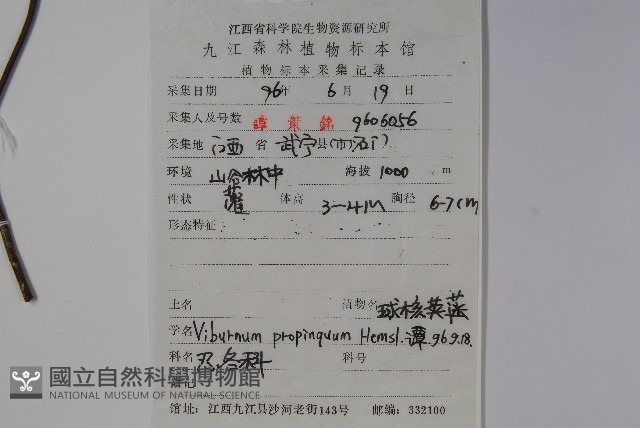 江西省科学院生物资源研究所
九江森林植物标本馆
植物标本采集记录
采集日期 96年 6月 19日
采集人及号数 譚策銘 9606056
采集地 江西 省 武宁县(市)石门
环境 山谷林中 海拔 1000 m
性状 灌 体高 3-4m 胸径 6-7cm
形态特征
土名 植物名 球核荚蒾
学名 Viburnum propinquum Hemsl. 谭 96.9.18.
科名 忍冬科 科号
附记
馆址:江西九江县沙河老街143号 邮编:332100
國立自然科學博物館
NATIONAL MUSEUM OF NATURAL SCIENCE